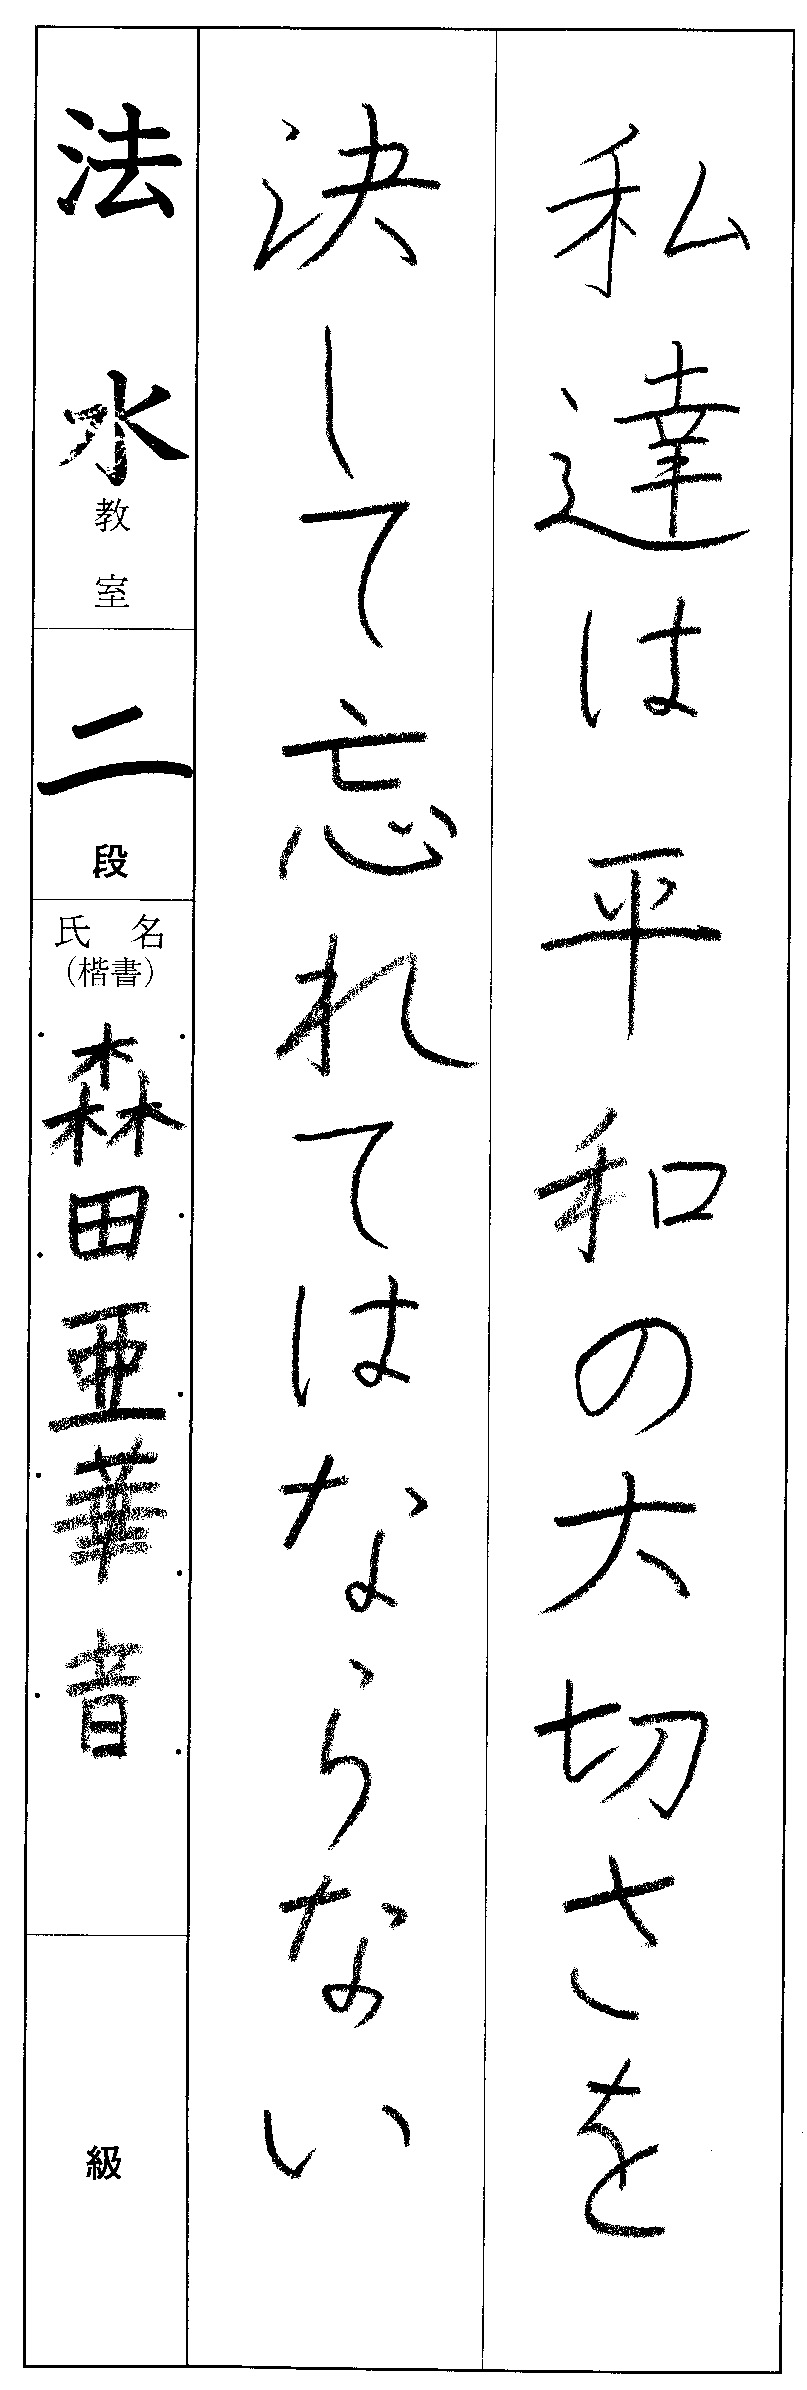 私達は平和の大切さを
決して忘れてはならない
法水教室
二段
氏名
(楷書)
森田亜華音
級